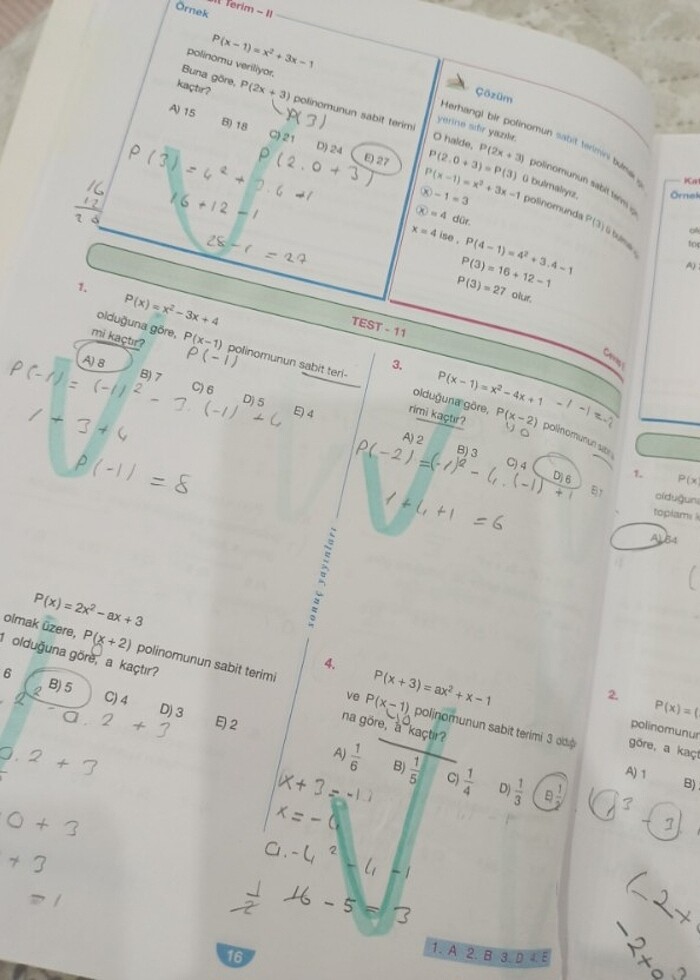 Terim – II
Örnek
P(x – 1) = x² + 3x – 1
polinomu veriliyor.
Buna göre, P(2x + 3) polinomunun sabit terimi
kaçtır?
A) 15 B) 18 C) 21 D) 24 E) 27
P(3)
P(2.0+3)
P(3) = 4² + 3.4 - 1
16 + 12 - 1
28 - 1 = 27
16
12
28
Çözüm
Herhangi bir polinomun sabit terimini
yerine sıfır yazılır.
O halde, P(2x + 3) polinomunun sabit terimi
P(2.0 + 3) = P(3) ü bulmalıyız.
P(x – 1) = x² + 3x – 1 polinomunda P(3) ü
x – 1 = 3
x = 4 dür.
x = 4 ise, P(4 – 1) = 4² + 3.4 – 1
P(3) = 16 + 12 – 1
P(3) = 27 olur.
TEST - 11
1.
P(x) = x² – 3x + 4
olduğuna göre, P(x–1) polinomunun sabit teri-
mi kaçtır?
P(-1)
A) 8 B) 7 C) 6 D) 5 E) 4
P(-1) = (-1)² - 3.(-1) + 4
1 + 3 + 4
P(-1) = 8
P(x) = 2x² – ax + 3
olmak üzere, P(x + 2) polinomunun sabit terimi
1 olduğuna göre, a kaçtır?
6 B) 5 C) 4 D) 3 E) 2
2² - a.2 + 3
a.2 + 3
0 + 3
+ 3
= 1
3.
P(x – 1) = x² – 4x + 1
olduğuna göre, P(x – 2) polinomunun
rimi kaçtır?
A) 2 B) 3 C) 4 D) 6
P(-2) = (-1)² - 4.(-1) + 1
1 + 4 + 1 = 6
sonuç yayınları
4.
P(x + 3) = ax² + x – 1
ve P(x – 1) polinomunun sabit terimi 3
na göre, a kaçtır?
A) 1/6 B) 1/5 C) 1/4 D) 1/3 E) 1/2
x + 3 = -1
x = -4
a.-4² - 4 - 1
1/2 16 - 5 = 3
16
1. A 2. B 3. D 4. E
Örnek
A)
1.
P(x)
olduğuna
toplamı
A) 64
2.
P(x) = (
polinomunun
göre, a kaçt
A) 1 B)
-3
(-2x
-2x